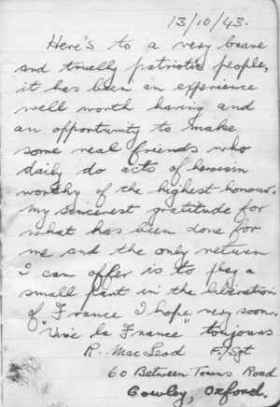 13/10/43.
Here's to a very brave
and truelly patriotic people,
it has been an experience
well worth having and
an opportunity to make
some real friends who
daily do acts of heroism
worthy of the highest honour.
My sincerest gratitude for
what has been done for
me and the only return
I can offer is to play a
small part in the liberation
of France I hope very soon.
"Vive la France" toujours
R. MacLeod F/Sgt
60 Between Towns Road
Cowley, Oxford.